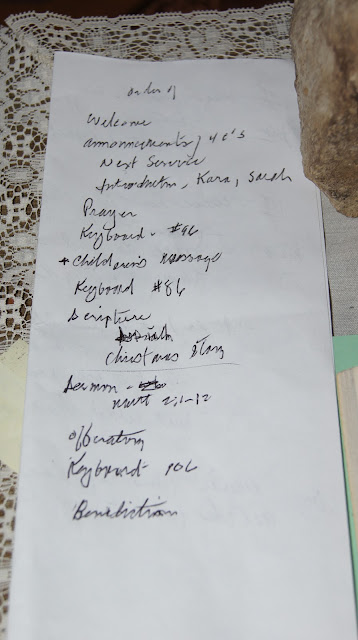 order of
Welcome
announcements, 4 c's
Next Service
Introduction, Kara, Sarah
Prayer
Keyboard - #96
* Children's message
Keyboard #86
Scripture
Christmas Story
Sermon -
Matt 2:1-12
offeratory
Keyboard 106
Benediction